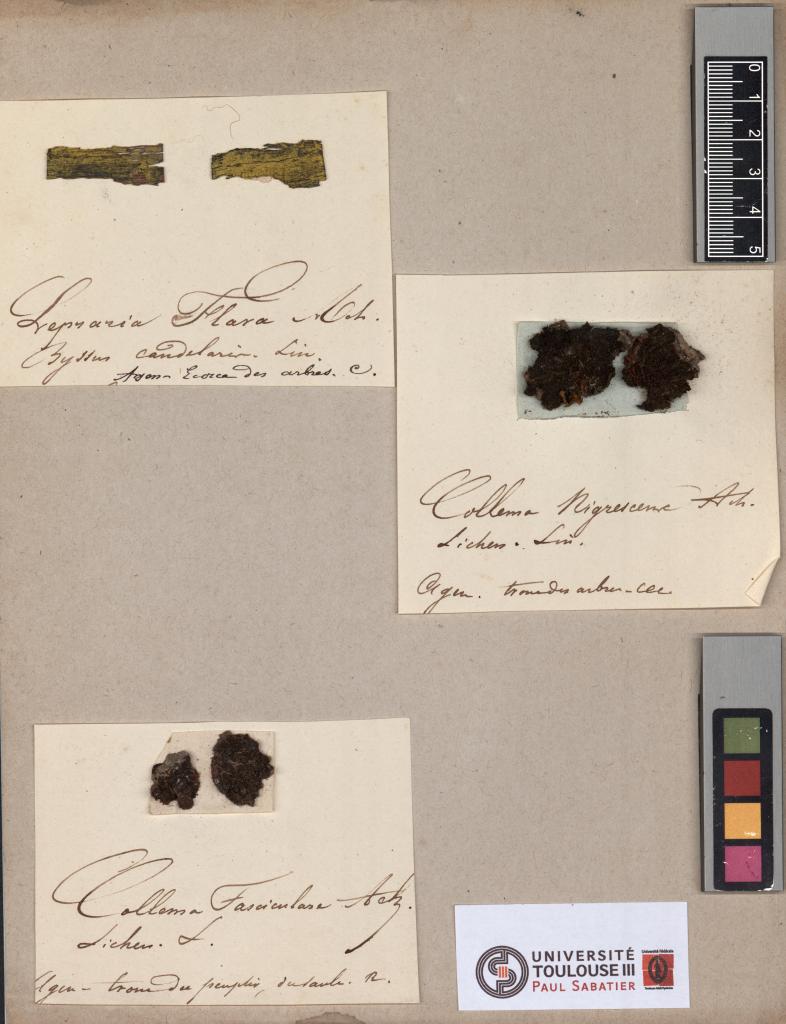 0 1 2 3 4 5
Lepraria Flava Ach.
Byssus candelaris. Lin.
Agen - Ecorce des arbres. C.
Collema Nigrescens Ach.
Lichen. Lin.
Agen. tronc des arbres - CCC
Collema Fasciculare Ach.
Lichen. L.
Agen - tronc du peuplier, du saule. R.
UNIVERSITÉ
TOULOUSE III
PAUL SABATIER
Université Fédérale
Toulouse Midi-Pyrénées